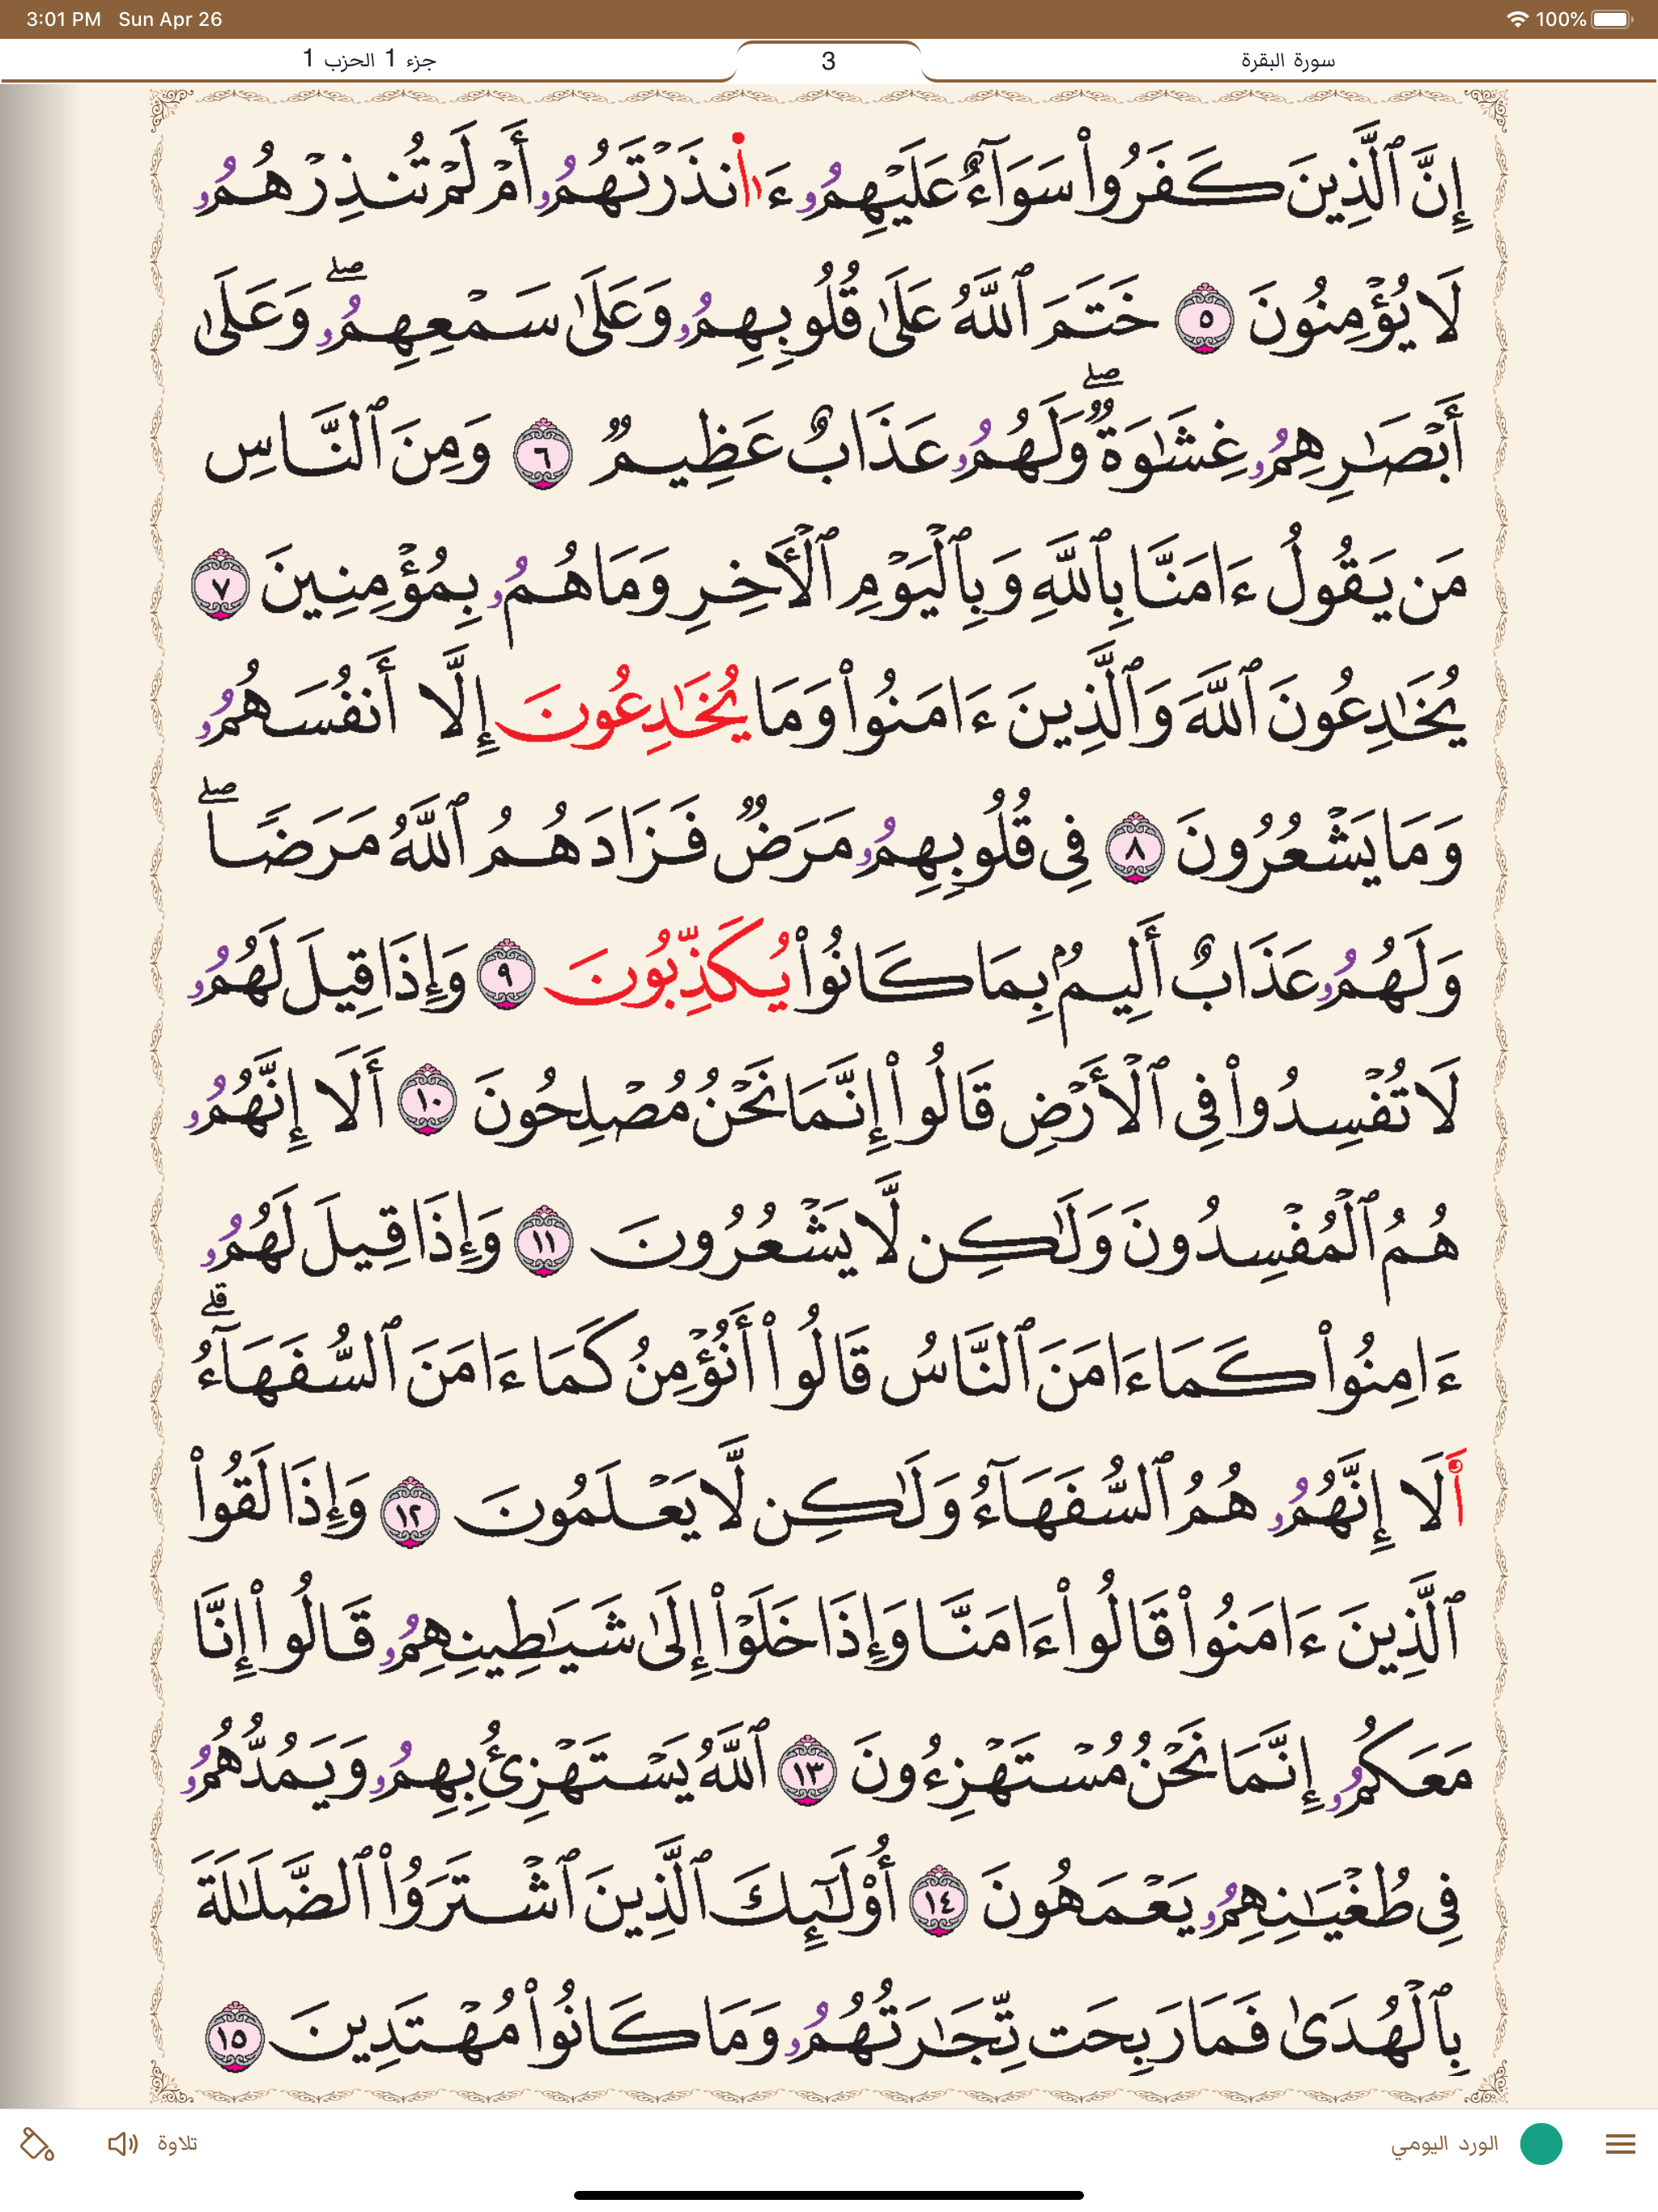 3:01 PM Sun Apr 26 100%
سورة البقرة 3 جزء 1 الحزب 1
إِنَّ ٱلَّذِينَ كَفَرُوا۟ سَوَآءٌ عَلَيْهِمُۥ ءَا۬نذَرْتَهُمُۥ أَمْ لَمْ تُنذِرْهُمُۥ
لَا يُؤْمِنُونَ ٥ خَتَمَ ٱللَّهُ عَلَىٰ قُلُوبِهِمُۥ وَعَلَىٰ سَمْعِهِمُۥ ۖ وَعَلَىٰ
أَبْصَـٰرِهِمُۥ غِشَـٰوَةٌ ۖ وَلَهُمُۥ عَذَابٌ عَظِيمٌ ٦ وَمِنَ ٱلنَّاسِ
مَن يَقُولُ ءَامَنَّا بِٱللَّهِ وَبِٱلْيَوْمِ ٱلْأَخِرِ وَمَا هُمُۥ بِمُؤْمِنِينَ ٧
يُخَـٰدِعُونَ ٱللَّهَ وَٱلَّذِينَ ءَامَنُوا۟ وَمَا يُخَـٰدِعُونَ إِلَّا أَنفُسَهُمُۥ
وَمَا يَشْعُرُونَ ٨ فِى قُلُوبِهِمُۥ مَرَضٌ فَزَادَهُمُ ٱللَّهُ مَرَضًا ۖ
وَلَهُمُۥ عَذَابٌ أَلِيمٌۢ بِمَا كَانُوا۟ يُكَذِّبُونَ ٩ وَإِذَا قِيلَ لَهُمُۥ
لَا تُفْسِدُوا۟ فِى ٱلْأَرْضِ قَالُوا۟ إِنَّمَا نَحْنُ مُصْلِحُونَ ١٠ أَلَا إِنَّهُمُۥ
هُمُ ٱلْمُفْسِدُونَ وَلَـٰكِن لَّا يَشْعُرُونَ ١١ وَإِذَا قِيلَ لَهُمُۥ
ءَامِنُوا۟ كَمَا ءَامَنَ ٱلنَّاسُ قَالُوا۟ أَنُؤْمِنُ كَمَا ءَامَنَ ٱلسُّفَهَآءُ ۗ
أَلَا إِنَّهُمُۥ هُمُ ٱلسُّفَهَآءُ وَلَـٰكِن لَّا يَعْلَمُونَ ١٢ وَإِذَا لَقُوا۟
ٱلَّذِينَ ءَامَنُوا۟ قَالُوا۟ ءَامَنَّا وَإِذَا خَلَوْا۟ إِلَىٰ شَيَـٰطِينِهِمُۥ قَالُوا۟ إِنَّا
مَعَكُمُۥ إِنَّمَا نَحْنُ مُسْتَهْزِءُونَ ١٣ ٱللَّهُ يَسْتَهْزِئُ بِهِمُۥ وَيَمُدُّهُمُۥ
فِى طُغْيَـٰنِهِمُۥ يَعْمَهُونَ ١٤ أُو۟لَـٰٓئِكَ ٱلَّذِينَ ٱشْتَرَوُا۟ ٱلضَّلَـٰلَةَ
بِٱلْهُدَىٰ فَمَا رَبِحَت تِّجَـٰرَتُهُمُۥ وَمَا كَانُوا۟ مُهْتَدِينَ ١٥
الورد اليومي تلاوة